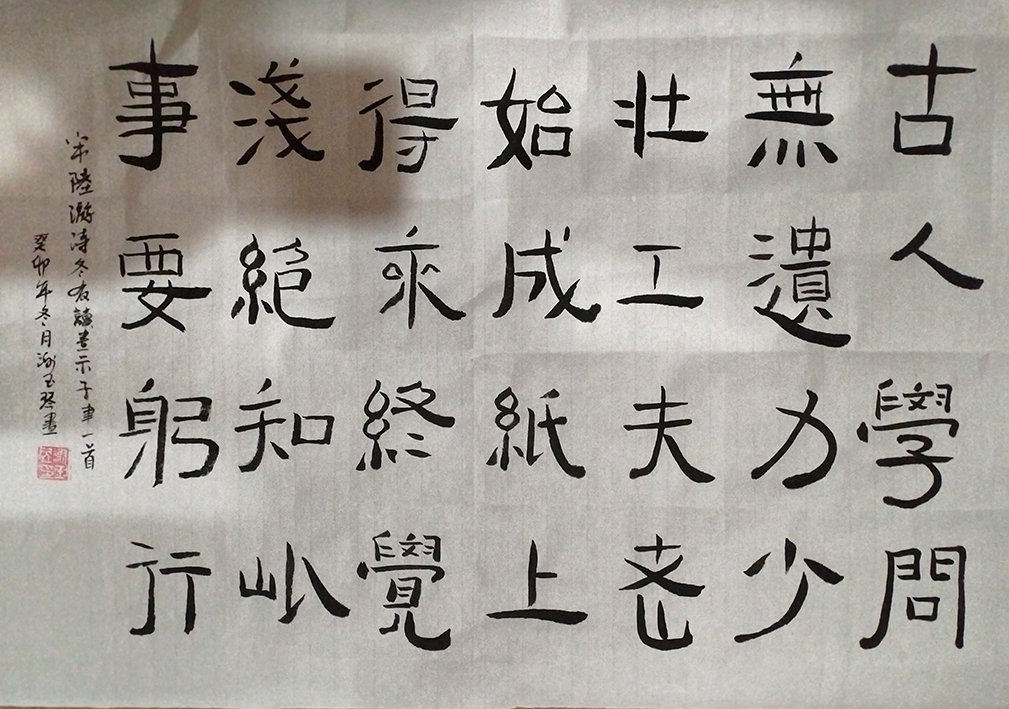 古人學問
無遺力少
壯工夫老
始成紙上
得來終覺
淺絕知此
事要躬行
宋陸游詩冬夜讀書示子聿一首
癸卯年冬月玉琴書